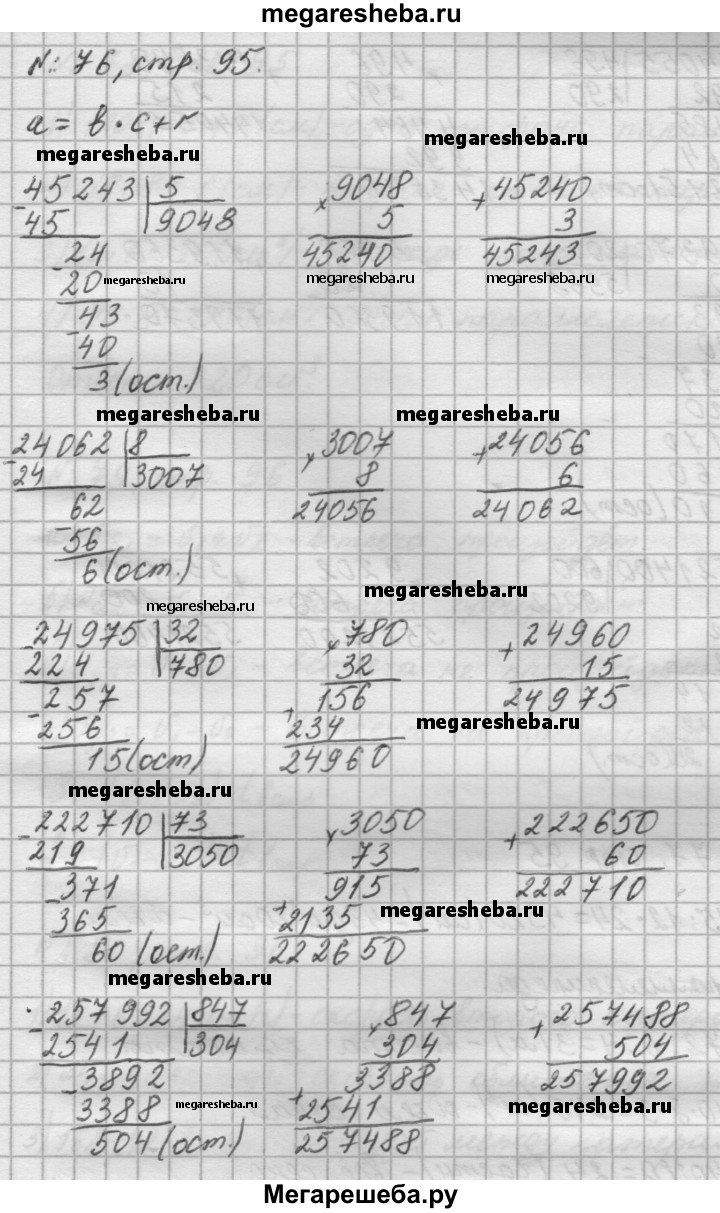 megaresheba.ru
№ 76, стр. 95.
a = b · c + r
megaresheba.ru
megaresheba.ru
- 45243 | 5
45 | 9048
× 9048
5
45240
+ 45240
3
45243
- 24
20
megaresheba.ru
megaresheba.ru
megaresheba.ru
- 43
40
3 (ост.)
megaresheba.ru
megaresheba.ru
- 24062 | 8
24 | 3007
× 3007
8
24056
+ 24056
6
24062
62
- 56
6 (ост.)
megaresheba.ru
megaresheba.ru
- 24975 | 32
224 | 780
× 780
32
156
+ 234
24960
+ 24960
15
24975
257
- 256
15 (ост)
megaresheba.ru
megaresheba.ru
- 222710 | 73
219 | 3050
× 3050
73
915
+ 2135
222650
+ 222650
60
222710
- 371
365
60 (ост.)
megaresheba.ru
megaresheba.ru
- 257992 | 847
2541 | 304
× 847
304
3388
+ 2541
257488
+ 257488
504
257992
- 3892
3388
504 (ост.)
megaresheba.ru
megaresheba.ru
Мегарешеба.ру